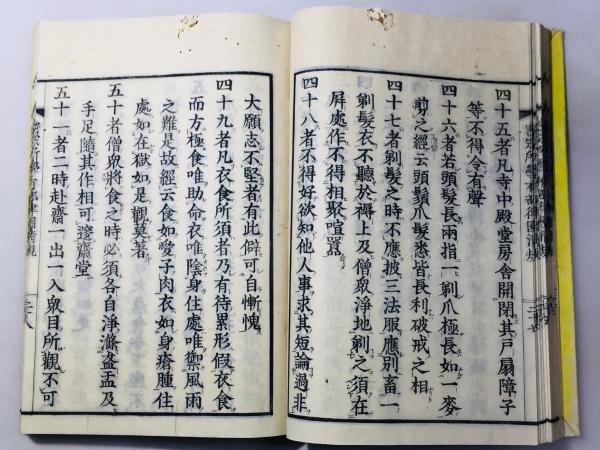 四十五者凡寺中殿堂房舍開閉其戸扇障子
等不得令有聲
四十六者若頭髮長兩指一剃爪極長如一麥
剪之經云頭鬚爪髮悉皆長利破戒之相
四十七者剃髮之時不應披三法服應別畜一
剃髮衣不聽於褥上及僧衆淨地剃之須在
屏處作不得相聚喧囂
四十八者不得好欲知他人事求其短論過非
大願志不堅者有此僻可自慚愧
四十九者凡衣食所須者乃有待累形假衣食
而方極食唯助命衣唯陰身住處唯禦風雨
之難是故經云食如愛子肉衣如身瘡腫住
處如在獄如是觀莫著
五十者僧衆將食之時必須各自淨滌盋盂及
手足隨其作相可邊齋堂
五十一者二時赴齋一出一入衆目所觀不可